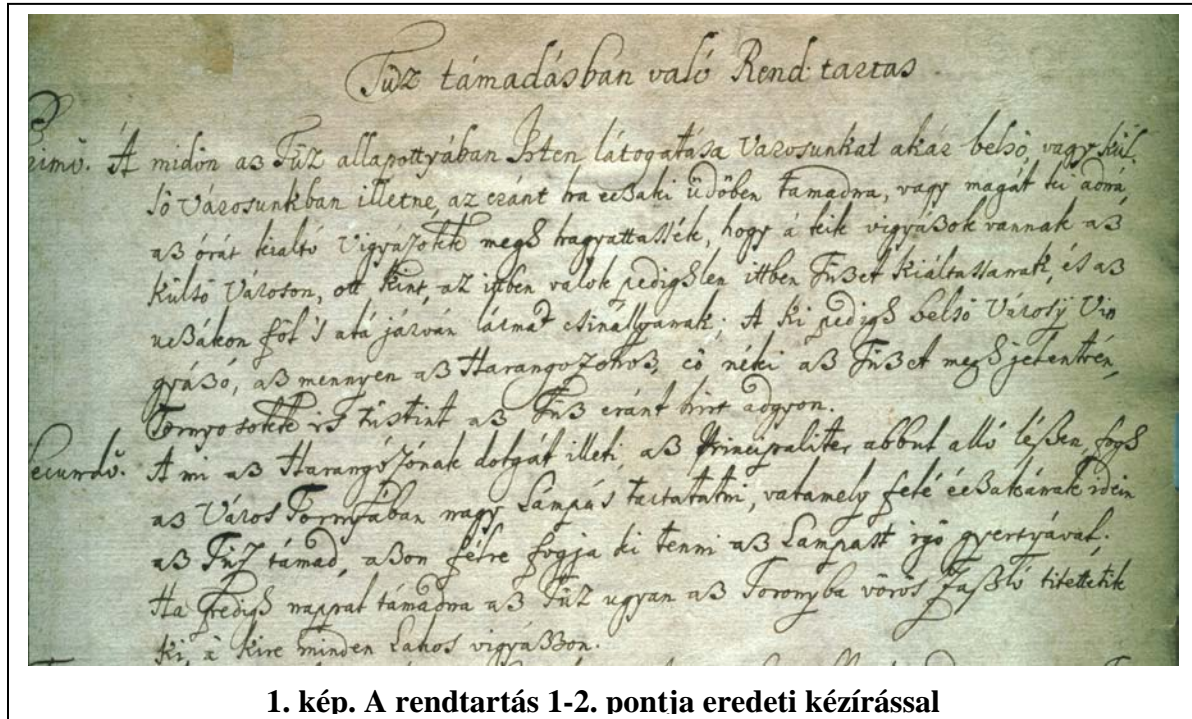 Tűz támadásban való Rend: tartas
rimô. Á midön aß Tűz allapottyában Isten látogatása Varosunkat akár belsö, vagy kül-
sö Városunkban illetné, az eránt ha ecßaki üdöben tamadna, vagy magát ki adná
aß órát kialtó Vigyázokk megh hagyattassék, hogy á kik vigyáßok vannak aß
külsö Városon, ott kint, az itben valok pedighlen ittben Tüßet kiáltassanak, és aß
ucßákon föl 's alá járván lármát csinállyanak; A ki pedigh belsö Városÿ Vi
gyáßó, aß mennyen aß Harangozohoß, és néki aß Tüßet megh jelentvén,
Tornyosokk is züstint aß Tüß eránt hirt adgyon.
ecundô. A mi aß Harangózónak dolgát illeti, aß Principaliter abbul alló léßen, fogh
aß Város Tornyában nagy Lampás tartatatni, valamely felé écßakának idein
aß Tűz támad, aßon félre fogja ki tenni aß Lampást igö gyertyával.
Ha pedigh nappal támadna aß Tűz ugyan aß Toronyba vörös Zaßló titettetik
ki, á kire minden Lakos vigyáßßon.
1. kép. A rendtartás 1-2. pontja eredeti kézírással